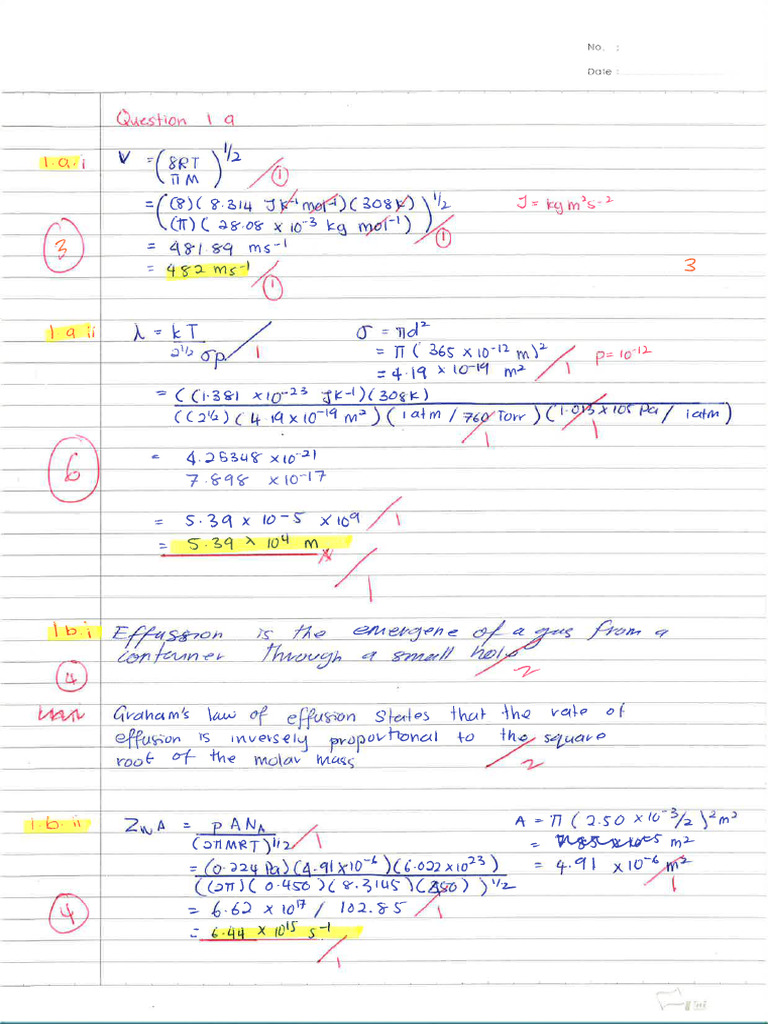 No. :
Date :
Question 1 a
1.a.i V = (8RT / πM)^1/2 / 1
= ((8)(8.314 JK-1 mol-1)(308K) / (π)(28.08 x 10-3 kg mol-1))^1/2 / 1 J = kg m2s-2
3 = 481.89 ms-1
= 482 ms-1 / 1 3
1 a ii λ = kT / 2^1/2 σp / 1 σ = πd2
= π(365 x 10-12 m)2 / 1 p = 10-12
= 4.19 x 10-19 m2
= ((1.381 x 10-23 JK-1)(308K)
((2^1/2)(4.19 x 10-19 m2)(1 atm / 760 Torr)(1.013 x 105 Pa / 1 atm)
1 1
6 = 4.25348 x 10-21
7.898 x 10-17
= 5.39 x 10-5 x 10^9 / 1
= 5.39 x 10^4 m
/ 1
1 b.i Effussion is the emergene of a gas from a
4 container through a small hole / 2
Graham's law of effusion states that the rate of
effusion is inversely proportional to the square
root of the molar mass / 2
1.b.ii ZwA = pANA / (2πMRT)^1/2 / 1 A = π(2.50 x 10-3/2)2 m2
= m2
= (0.224 Pa)(4.91 x 10-6)(6.022 x 10^23) = 4.91 x 10-6 m2 / 1
((2π)(0.450)(8.3145)(450))^1/2
4 = 6.62 x 10^17 / 102.85 / 1
= 6.44 x 10^15 s-1
/ 1